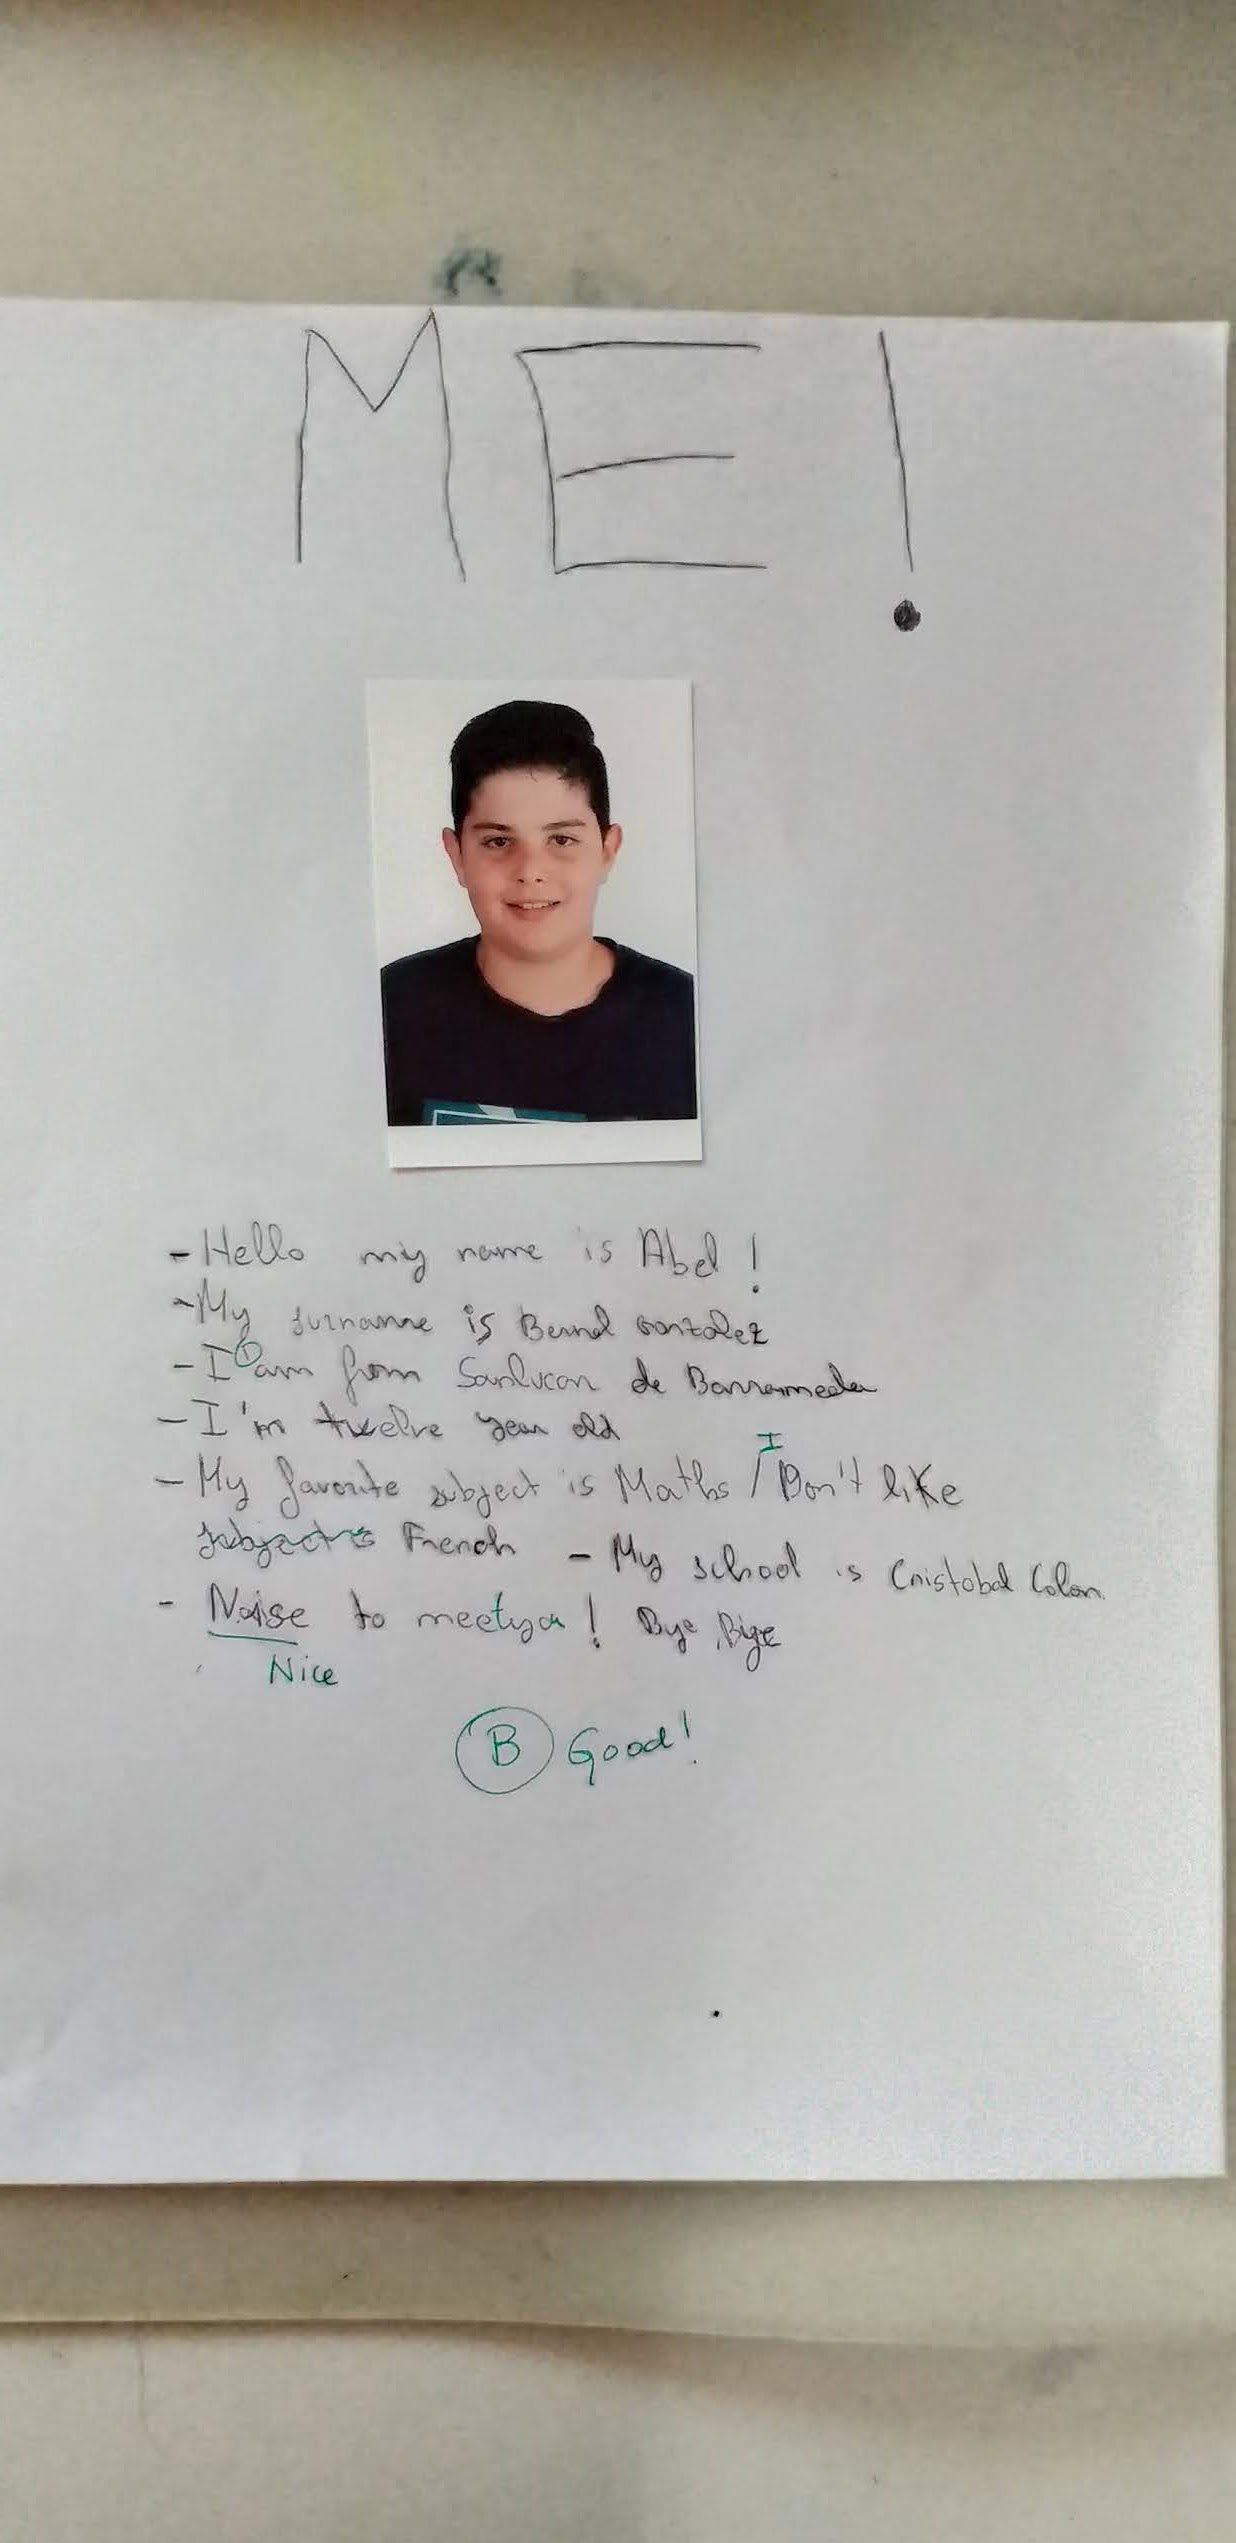 ME!
- Hello my name is Abel !
- My surname is Bernal Gonzalez
- I am from Sanlucar de Barrameda
- I'm twelve year old
I
- My favorite subject is Maths / Don't like
subject is French - My school is Cristobal Colon.
- Noise to meetyou ! Bye, Bye
Nice
B Good!